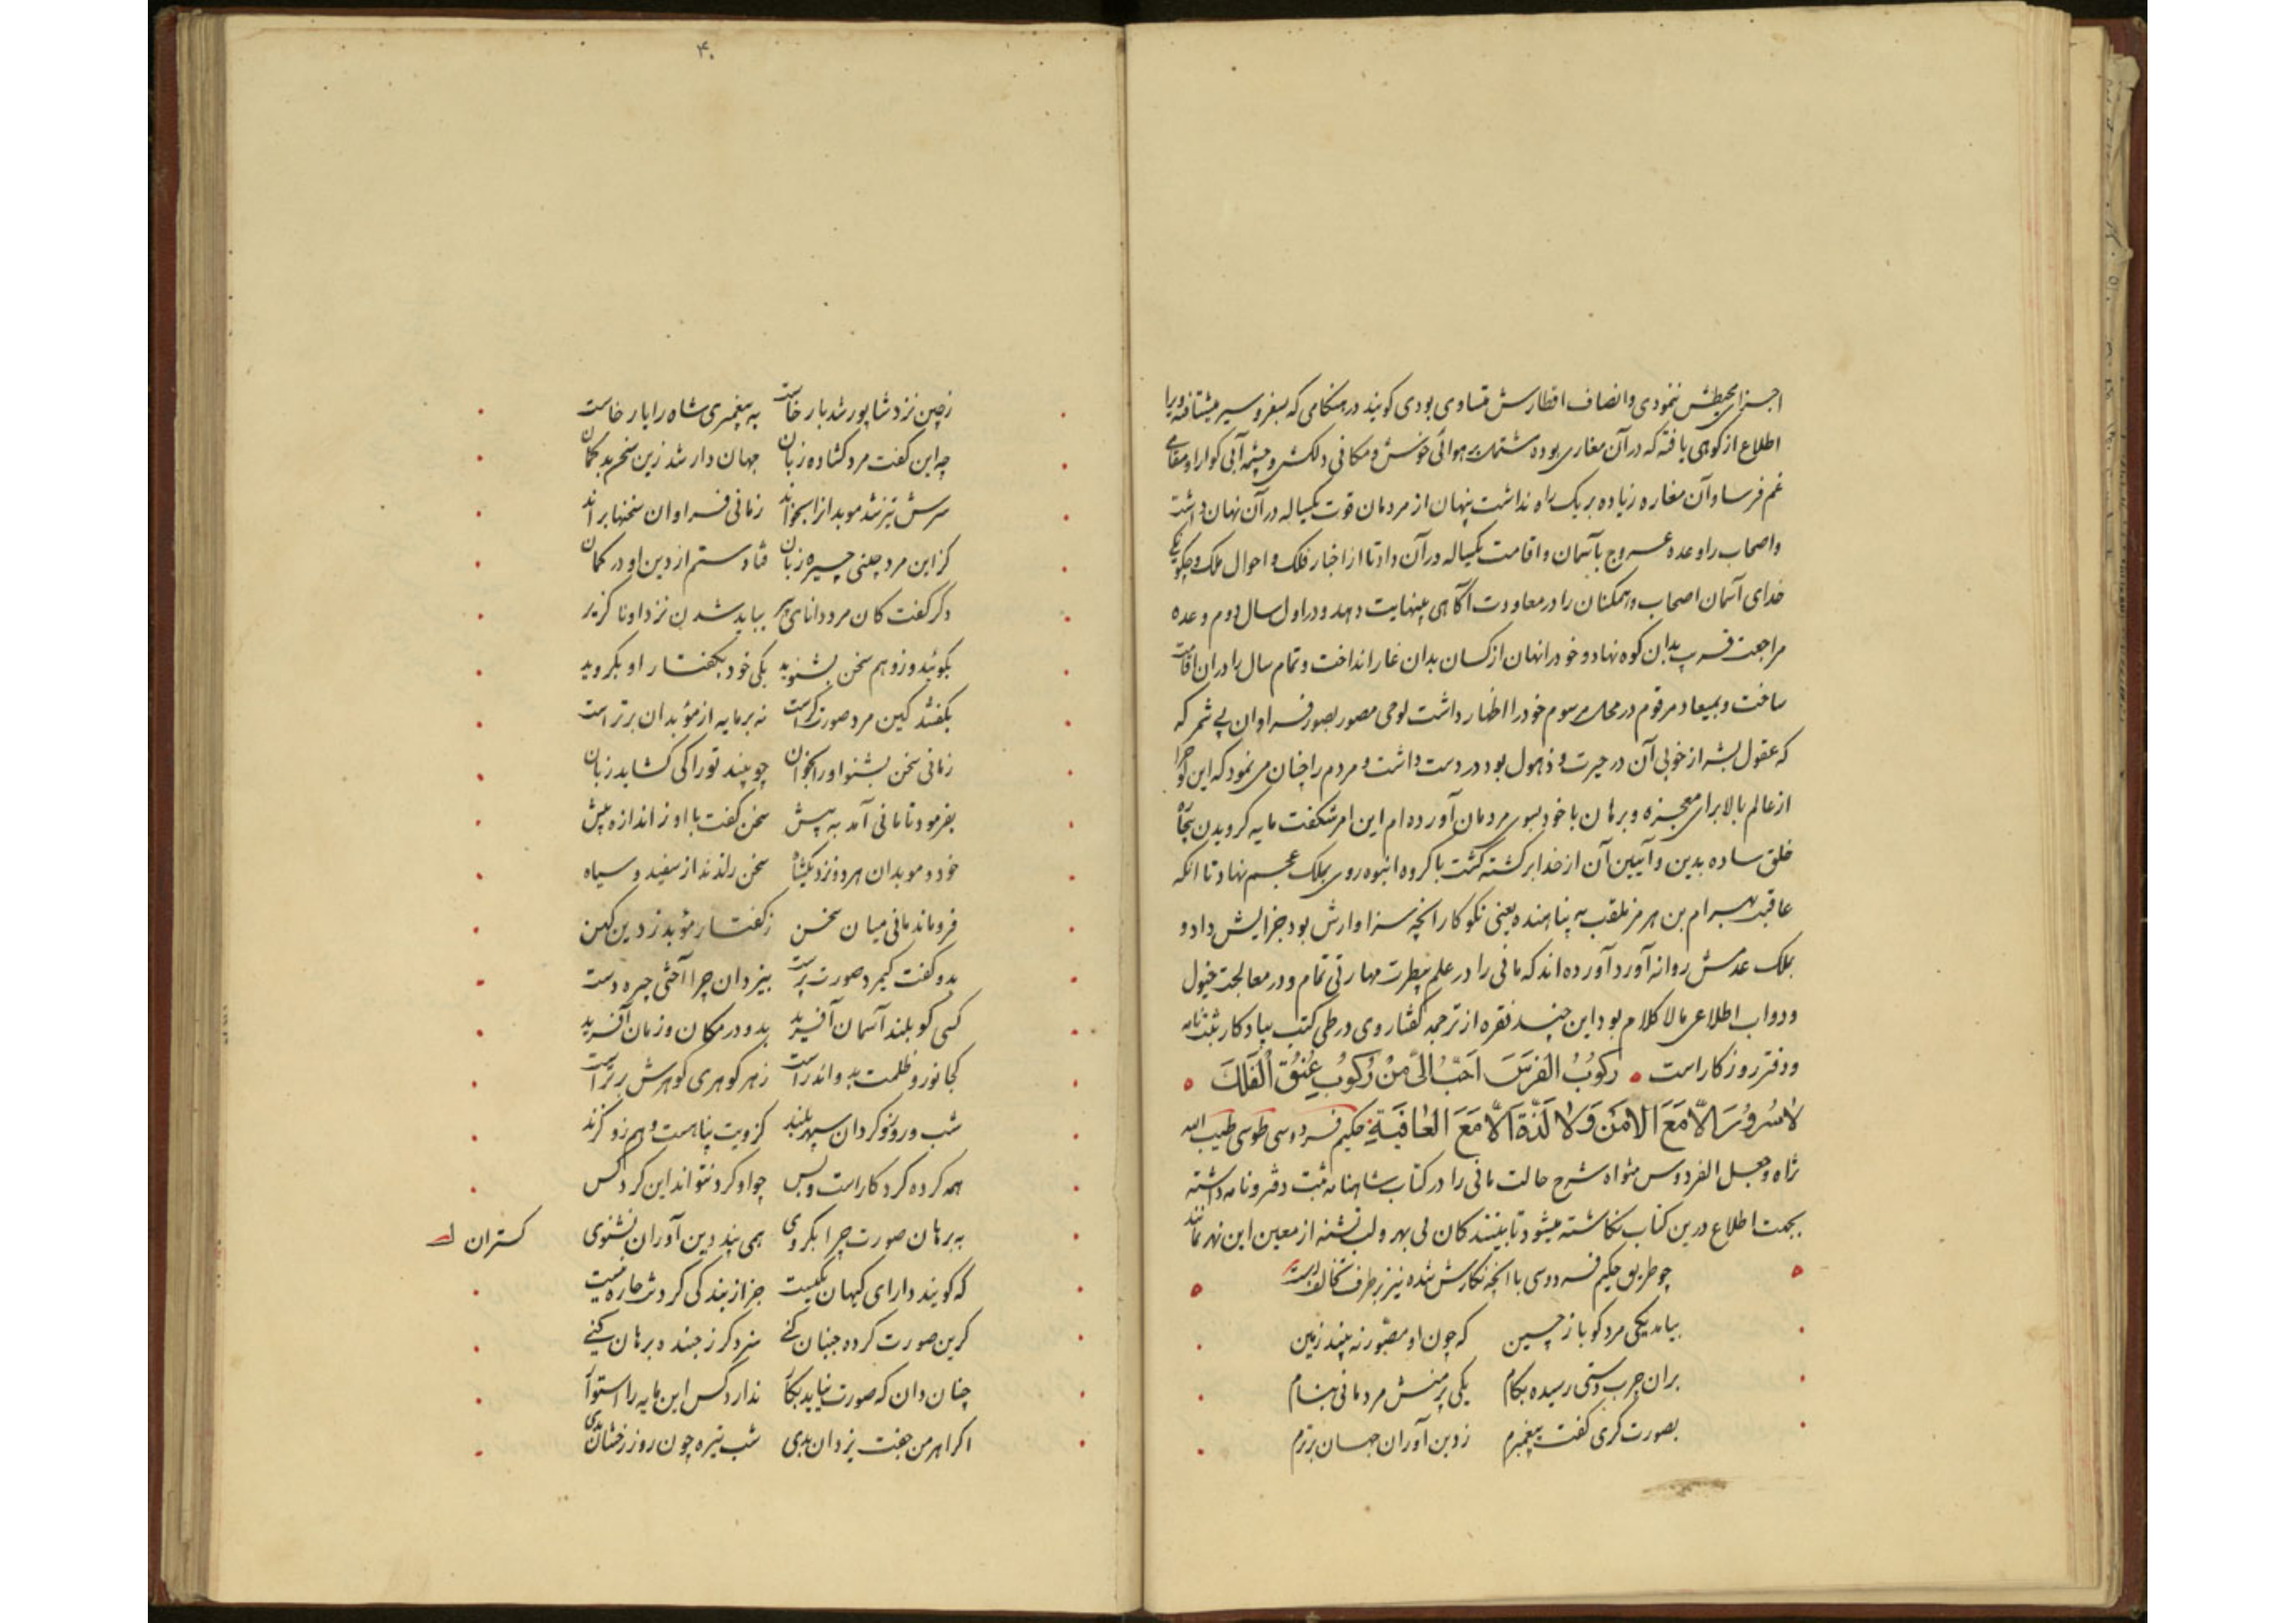 اجزای محیطش ننمودی و انصاف اقطارش متساوی بودی کویند در هنکامی که بسفر و سیر میشتافته ویرا
اطلاع از کوهی یافته که در آن مغاری بوده مشتمل بر هوائی خوش و مکانی دلکش و چشمه آبی کوارا و مقامی
غم فرسا و آن مغاره زیاده بر یک راه نداشت پنهان از مردمان قوت یکساله در آن نهان داشت
و اصحاب را وعده عروج بآسمان و اقامت یکساله در آن داد تا از اخبار فلک و احوال ملک و چکونکی
خدای آسمان اصحاب و همکنان را در معاودت آکاهی بینهایت دهد و در اول سال دوم وعده
مراجعت قرب بدان کوه نهاد و خود را نهان از کسان بدان غار انداخت و تمام سال را در ان اقامت
ساخت و بمیعاد مرقوم در محل مرسوم خود را اظهار داشت لوحی مصور بصور فراوان بی شمر که
که عقول بشر از خوبی آن در حیرت و ذهول بود در دست داشت و مردم را چنان می نمود که این لوح را
از عالم بالا برای معجزه و برهان با خود بسوی مردمان آورده ام این امر شکفت مایه کرویدن بیچاره
خلق ساده بدین و آیین آن از خدا برکشته کشت با کروه انبوه روی بملک عجم نهاد تا انکه
عاقبت بهرام بن هرمز ملقب به پناهنده یعنی نکو کار انچه سزاوارش بود جزایش داد و
بملک عدمش روانه آورد آورده اند که مانی را در علم بیطرت مهارتی تمام و در معالجت خیول
و دواب اطلاعی مالا کلام بود این چند فقره از ترجمه کفتار وی در طی کتب بیادکار ثبت نامه
و دفتر روزکار است رکوب الفرس احب الی من رکوب عنق الفلک
لا سرور الا مع الامن و لا لذة الا مع العافیة حکیم فردوسی طوسی طیب الله
ثراه و جعل الفردوس مثواه شرح حالت مانی را در کتاب شاهنامه ثبت دفتر و نامه داشته
بجهت اطلاع درین کتاب نکاشته میشود تا بینندکان بی بهر و لب تشنه از معین این نهر نمانند
چو طریق حکیم فردوسی با انچه نکارش شده نیز بر طرف تخالف است
بیامد یکی مرد کویا ز چین که چون او مصور نه بیند زمین
بران چرب دستی رسیده بکام یکی پر منش مرد مانی بنام
بصورت کری کفت پیغمبرم ز دین آوران جهان برترم
۴۰
ز چین نزد شاپور شد بار خاست به پیغمبری شاه را یار خاست
چه این کفت مرد کشاده زبان جهان دار شد زین سخن بد کمان
سرش تیز شد موبدانرا بخواند زمانی فراوان سخنها براند
کز این مرد چینی چیره زبان فتادستم از دین او در کمان
دکر کفت کان مرد دانای پیر بباید شدن نزد او ناکزیر
بکوئید و زو هم سخن بشنوید یکی خود بکفتار او بکروید
بکفتند کین مرد صورتکر است نه بر مایه از مؤبدان برتر است
زمانی سخن بشنو او را بخوان چو بیند تو را کی کشاید زبان
بفرمود تا مانی آمد به پیش سخن کفت با او ز اندازه بیش
خود و موبدان هر دو نزدیک شاه سخن راندند از سفید و سیاه
فرو ماند مانی میان سخن ز کفتار مؤبد ز دین کهن
بدو کفت کیمرد صورت پرست بیزدان چرا آختی چیره دست
کسی کو بلند آسمان آفرید بدو در مکان و زمان آفرید
کجا نور و ظلمت بدو اندر است ز هر کوهری کوهرش برتر است
شب و روز و کردان سپهر بلند کزویت پناهست و هم زو کزند
همه کرده کردکار است و بس چو او کرد نتواند این کرد کس
به برهان صورت چرا بکروی همی پند دین آوران نشنوی
کستران
که کویند دارای کیهان یکیست جز از بندکی کردنت چاره نیست
کرین صورت کرده جنبان کنی سزد کر ز جنبده برهان کنی
چنان دان که صورت نیاید بکار ندارد کس این مایه را استوار
اکر اهرمن جفت یزدان بدی شب تیره چون روز رخشان بدی